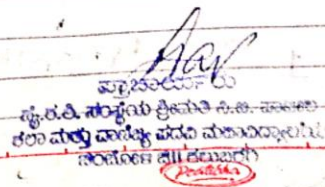 ಪ್ರಾಚಾರ್ಯರು
ಹೈ.ಕ.ಶಿ. ಸಂಸ್ಥೆಯ ಶ್ರೀಮತಿ ಸಿ.ಬಿ. ಪಾಟೀಲ
ಕಲಾ ಮತ್ತು ವಾಣಿಜ್ಯ ಪದವಿ ಮಹಾವಿದ್ಯಾಲಯ
ಚಿಂಚೋಳಿ ಜಿ|| ಕಲಬುರಗಿ